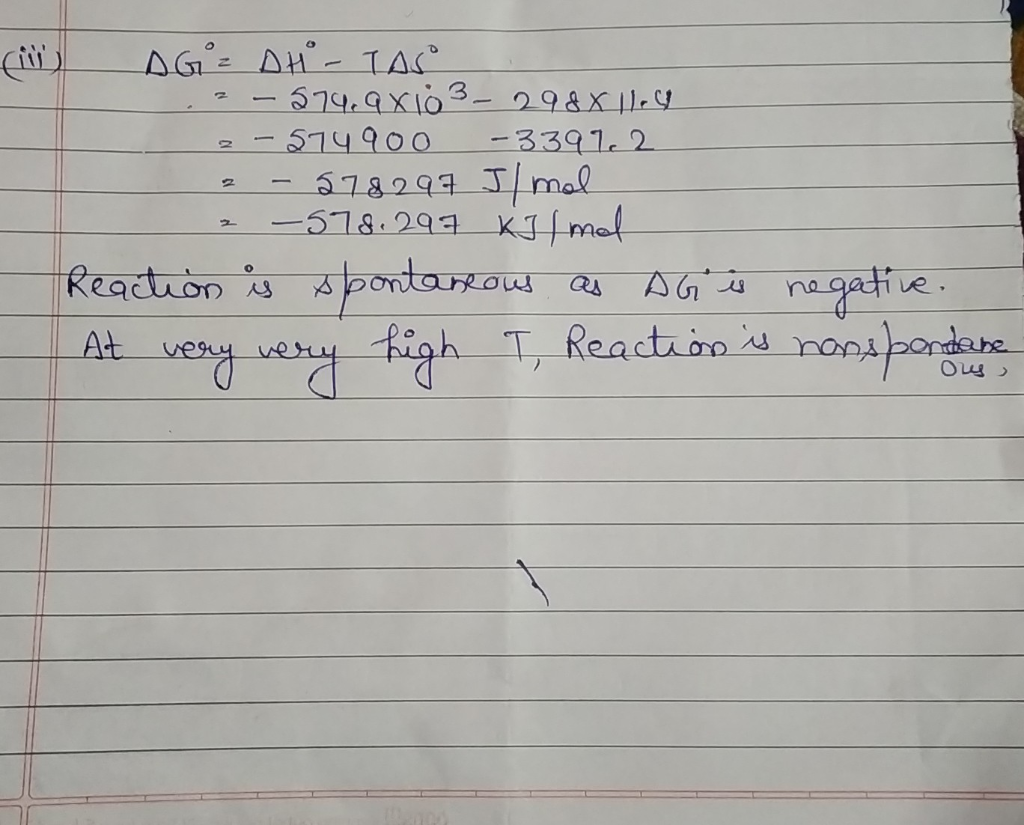 (iii) ΔG° = ΔH° - TΔS°
= - 574.9 X 10³ - 298 X 11.4
= - 574900 - 3397.2
= - 578297 J/mol
= - 578.297 KJ/mol
Reaction is spontaneous as ΔG° is negative.
At very very high T, Reaction is nonspontane
ous,